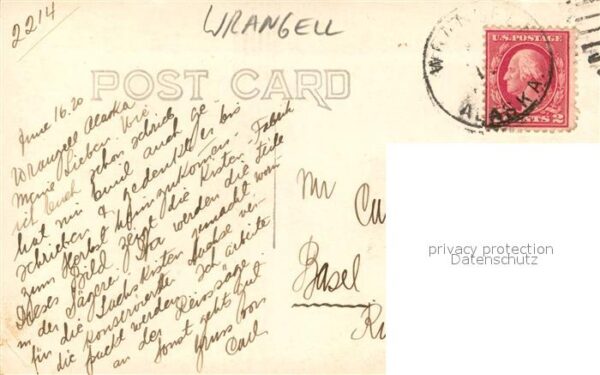 2214
WRANGELL
U.S. POSTAGE
CENTS 2
ALASKA
POST CARD
June 16. 20
Wrangell Alaska
Meine Lieben. Wie
ich Euch schon schrieb
hat mir Emil auch ge-
schrieben & gedenkt er bis
zum Herbst heimzukommen.
Dieses Bild zeigt die Kisten-Fabrik
in der Sägerei. Hier werden die Teile
für die Lachskisten gemacht worin
die konservierten Lachse ver-
packt werden. Ich arbeite
an der Kreissäge.
Sonst gehts gut
Gruss von
Carl.
Mr
Basel
privacy protection
Datenschutz